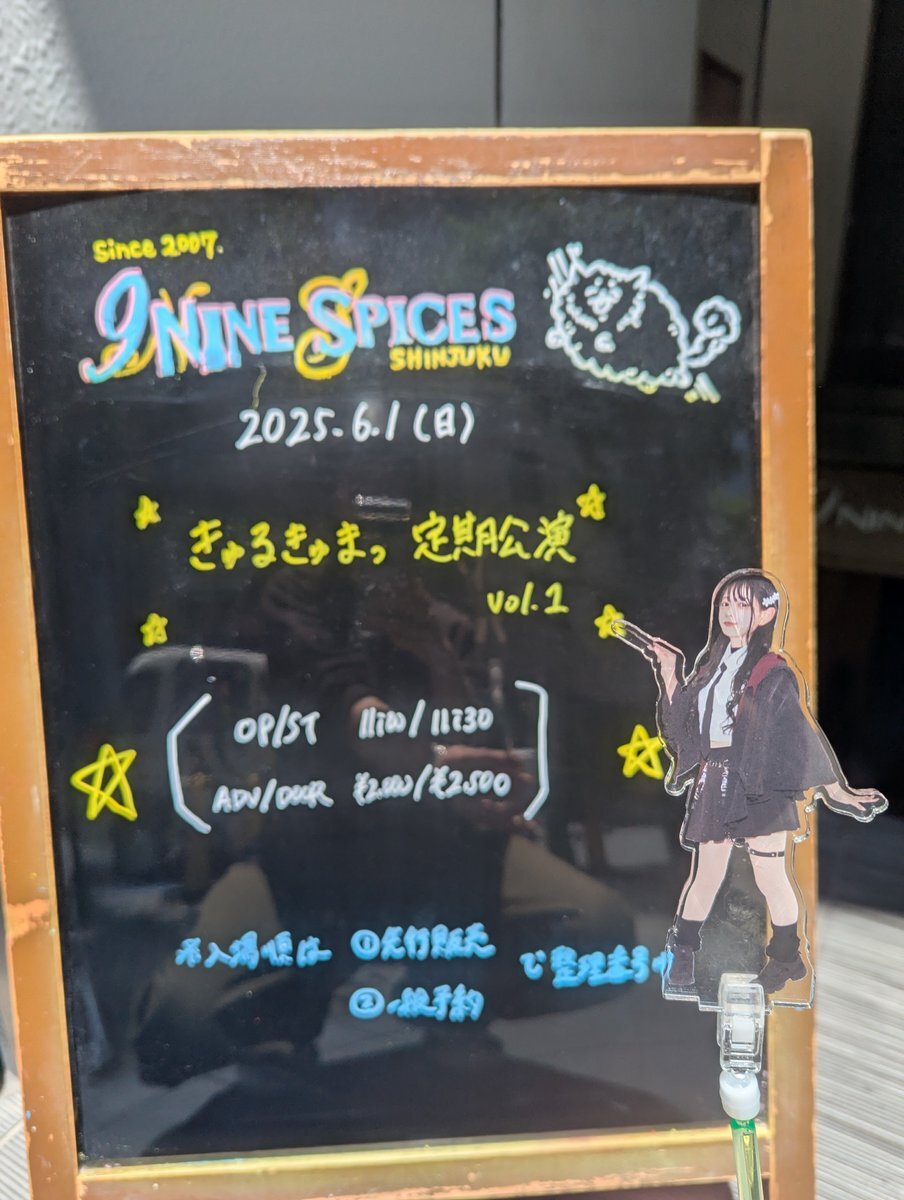 Since 2007.
9NINE SPICES
SHINJUKU
2025.6.1(日)
きゅるきゅまっ 定期公演
vol.1
OP/ST 11:00/11:30
ADV/DOOR ¥2,000/¥2,500
※入場順は ①先行販売 で整理番号
②一般予約
NINE